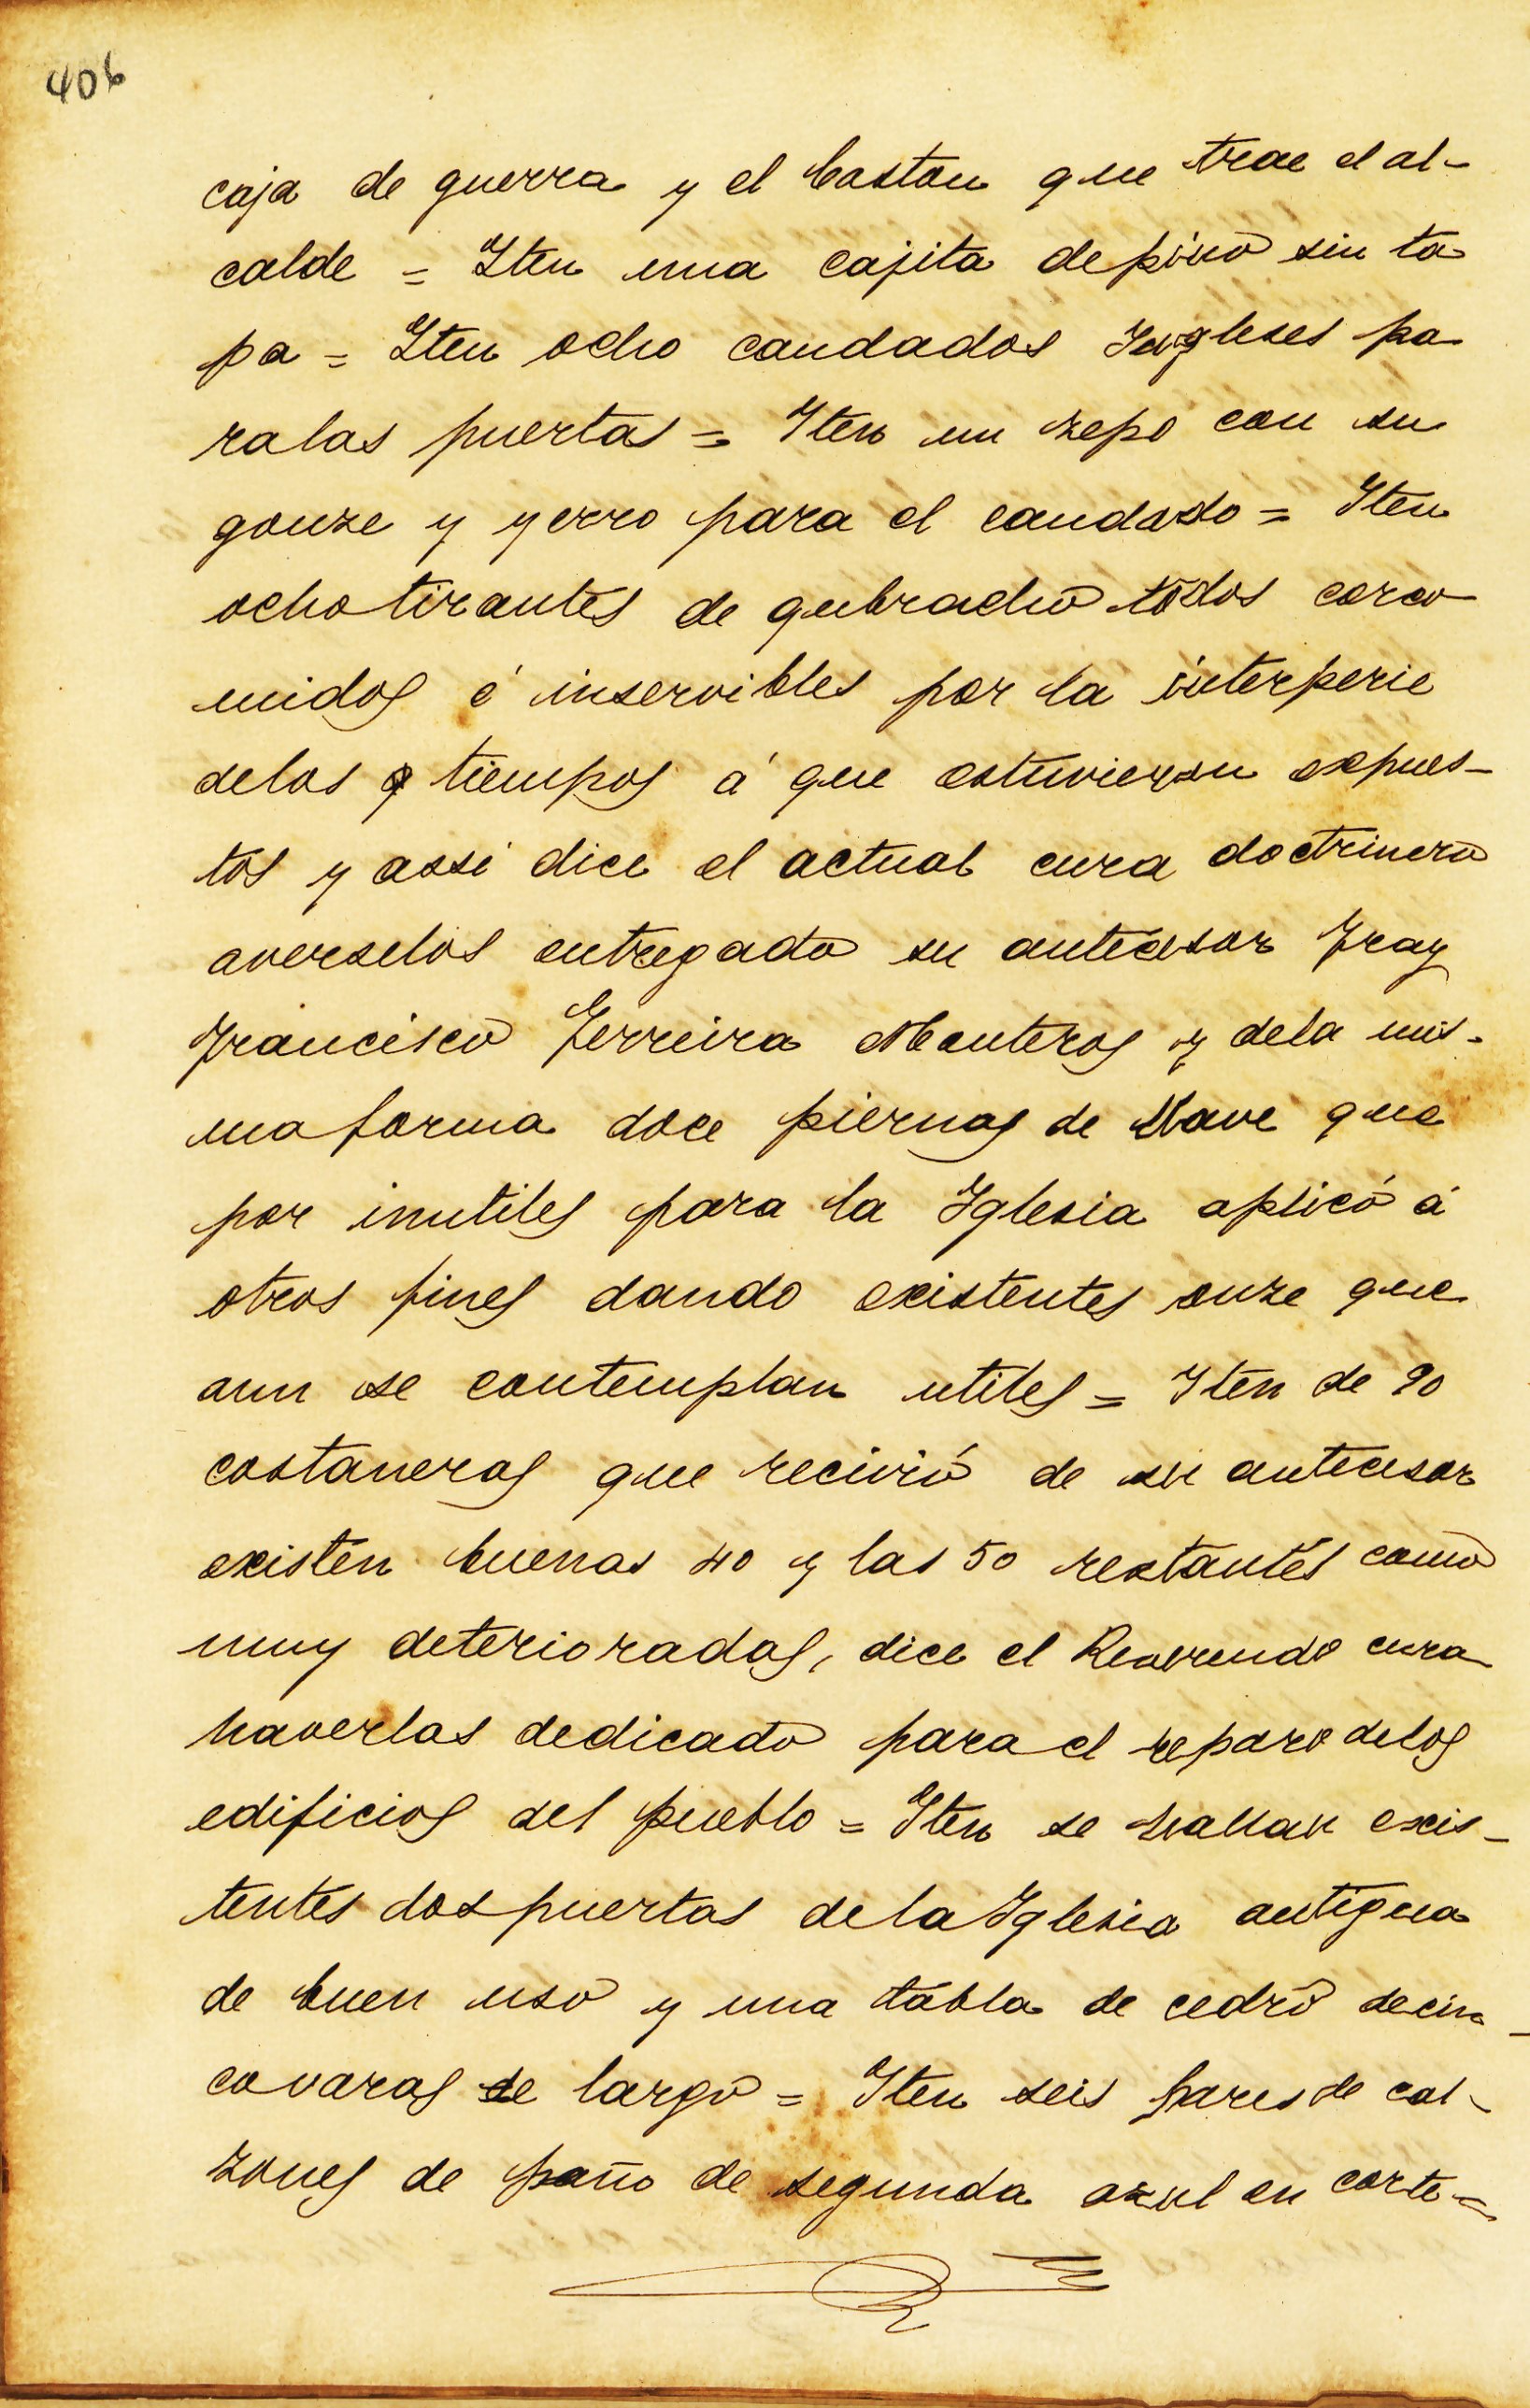 406
caja de guerra y el baston que trae el al-
calde = Iten una cajita de pino sin ta
pa = Iten ocho candados Ingleses pa
ralas puertas = Iten un zepo con su
gonze y yerro para el candado = Iten
ocho tirantes de quebracho todos carco
midos é inservibles por la interperie
delos tiempos á que estuvieron expues-
tos y assi dice el actual cura doctrinero
averselos entregado su antecesor Fray
Francisco Ferreira Monteros y dela mis-
ma forma doce piernas de llave que
por inutiles para la Iglesia aplicó á
otros fines dando existentes onze que
aun se contemplan utiles = Iten de 90
costaneras que recivió de su antecesor
existen buenas 40 y las 50 restantes como
muy deterioradas, dice el Reverendo cura
haverlas dedicado para el reparo delos
edificios del pueblo = Iten se hallan exis-
tentes dos puertas de la Iglesia antigua
de buen uso y una tabla de cedro decin-
covaras de largo = Iten seis pares de cal-
zones de paño de segunda azul en corte =